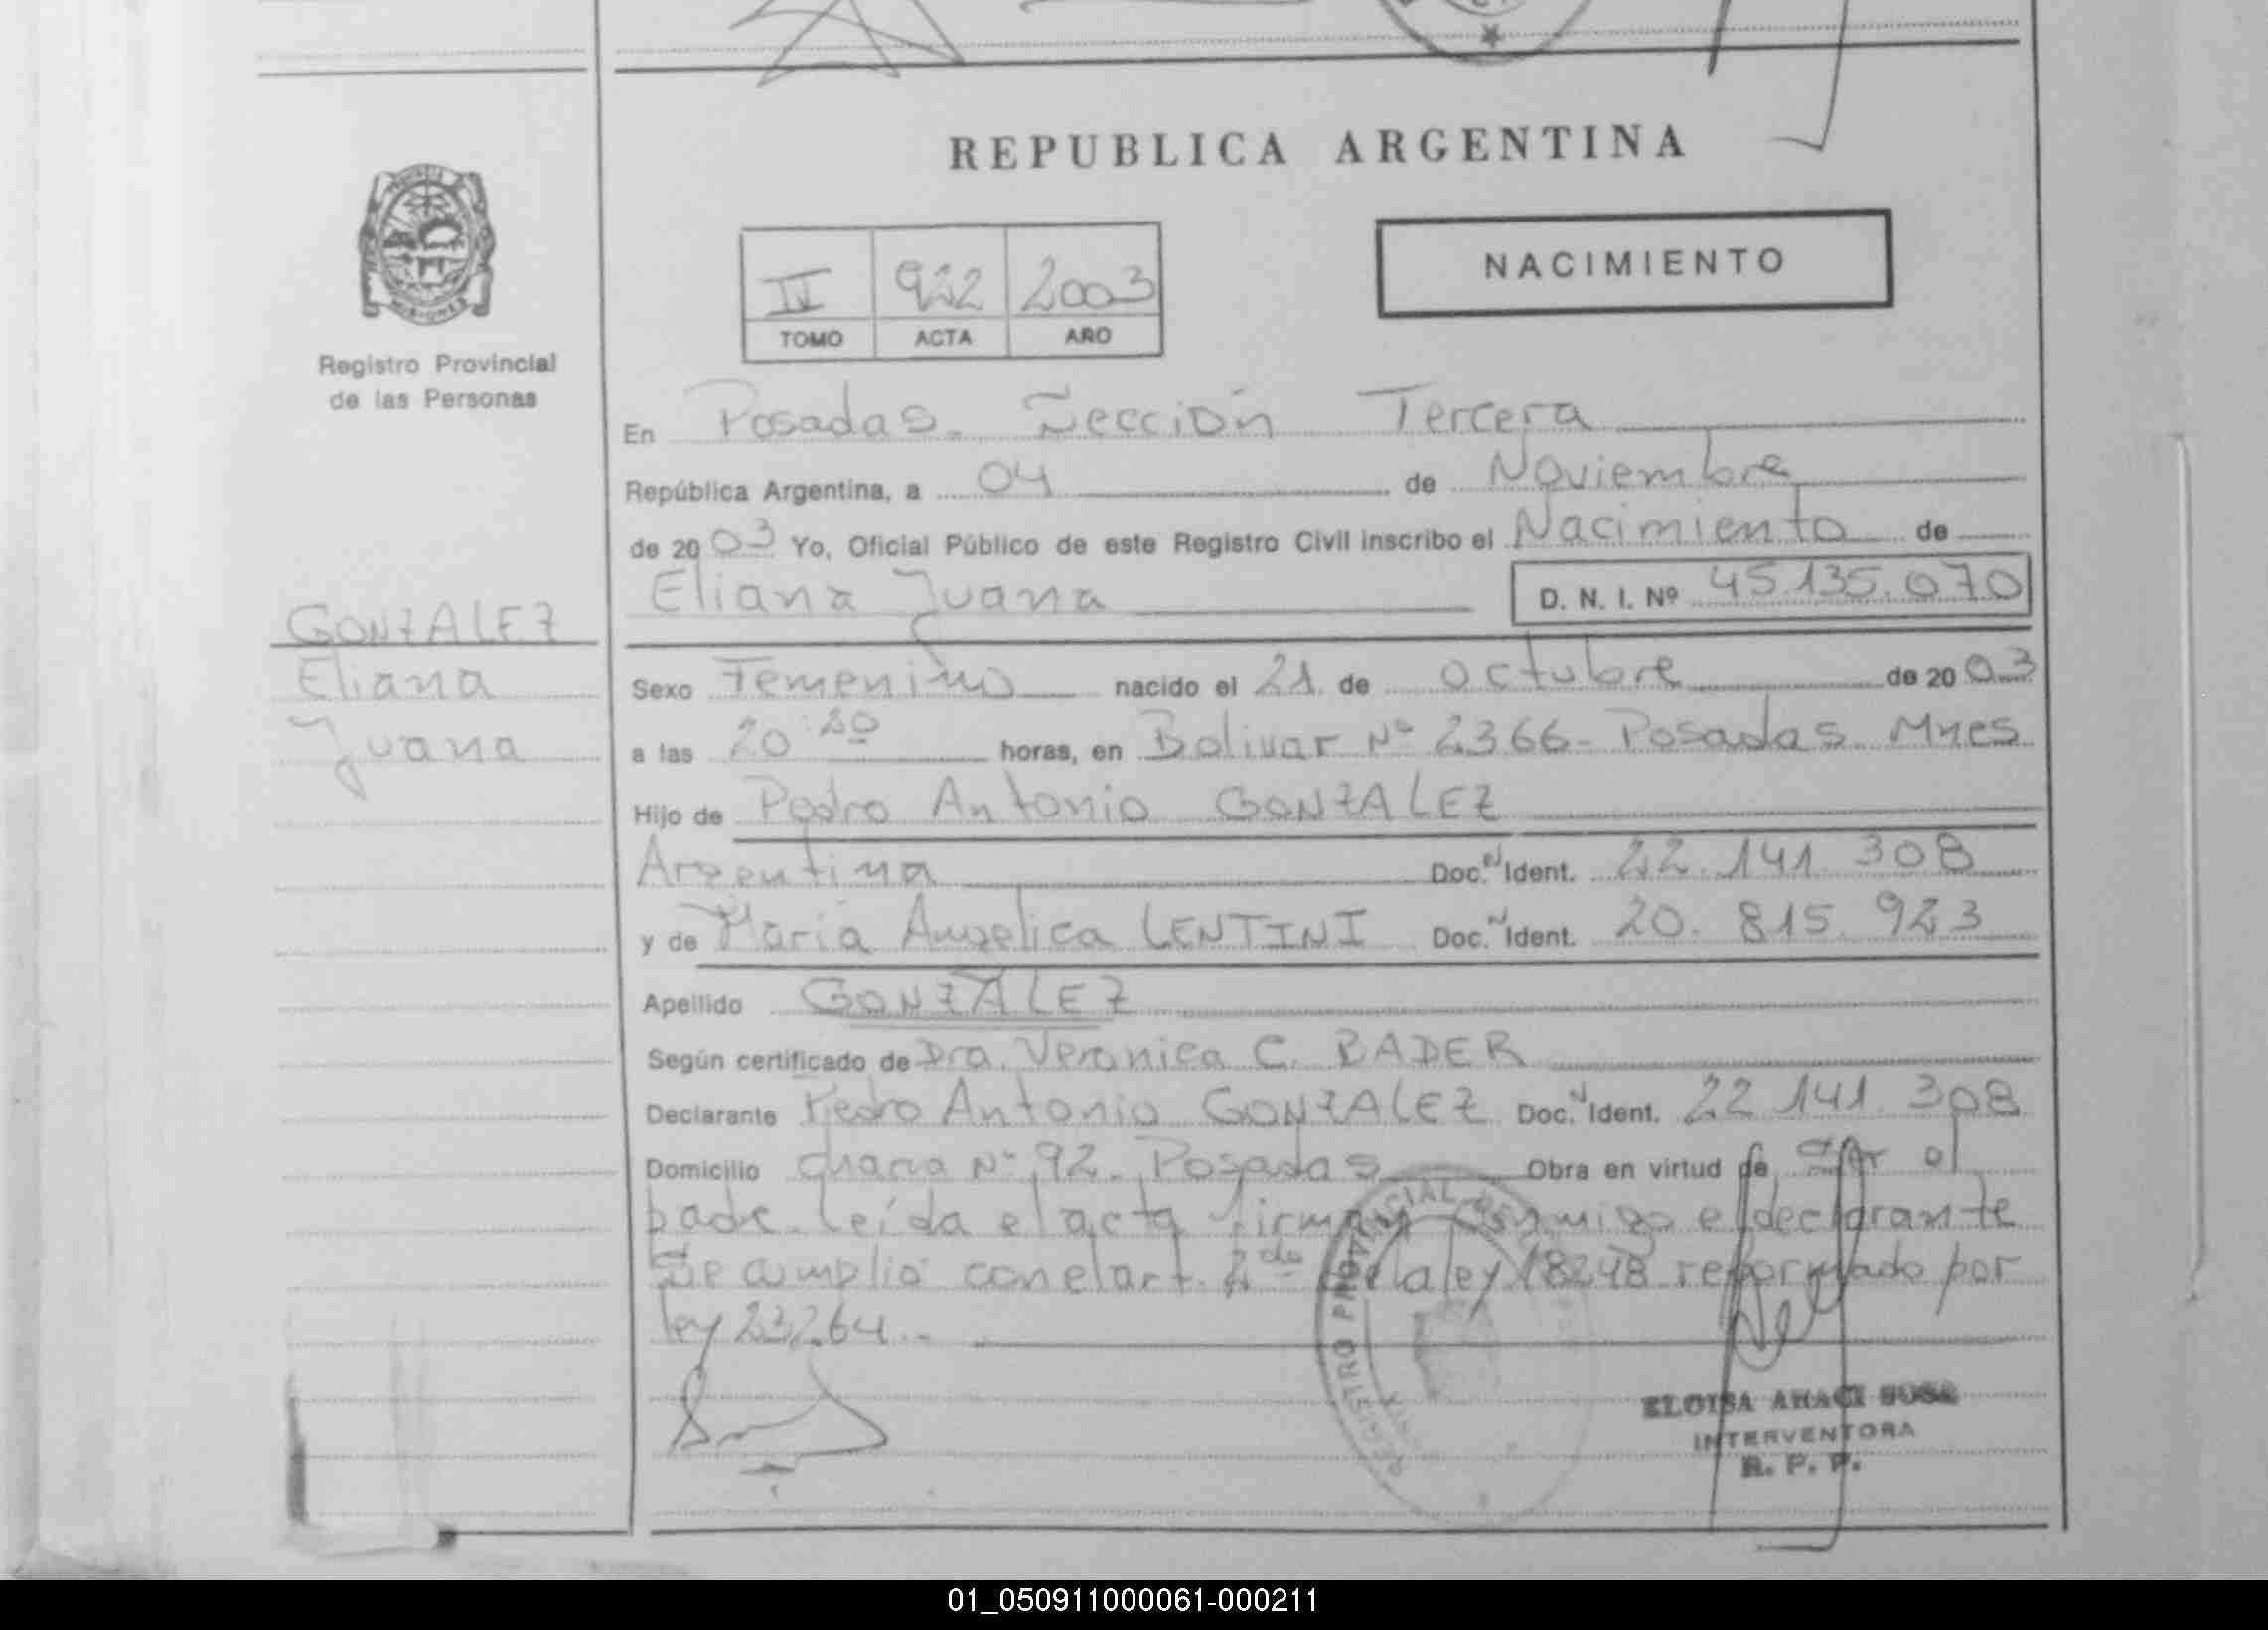 REPUBLICA ARGENTINA
IV 922 2003
TOMO ACTA AÑO
NACIMIENTO
Registro Provincial
de las Personas
En Posadas. Sección Tercera
República Argentina, a 04 de Noviembre
de 2003 Yo, Oficial Público de este Registro Civil inscribo el Nacimiento de
Eliana Juana D. N. I. Nº 45.135.070
GONZALEZ
Eliana
Juana
Sexo Femenino nacido el 21 de octubre de 2003
a las 20:20 horas, en Bolivar Nº 2366- Posadas Mnes
Hijo de Pedro Antonio GONZALEZ
Argentina Doc. Ident. 22.141.308
y de Maria Angelica LENTINI Doc. Ident. 20.815.923
Apellido GONZALEZ
Según certificado de Dra. Veronica C. BADER
Declarante Pedro Antonio GONZALEZ Doc. Ident. 22 141.308
Domicilio chacra Nº 92. Posadas Obra en virtud de ser el
padre. Leída el acta firma conmigo el declarante
Se amplió con el art. de la ley 18248 reformado por
ley 23264..
REGISTRO PROVINCIAL DE
ELOISA SOSA
INTERVENTORA
R. P. P.
01_050911000061-000211